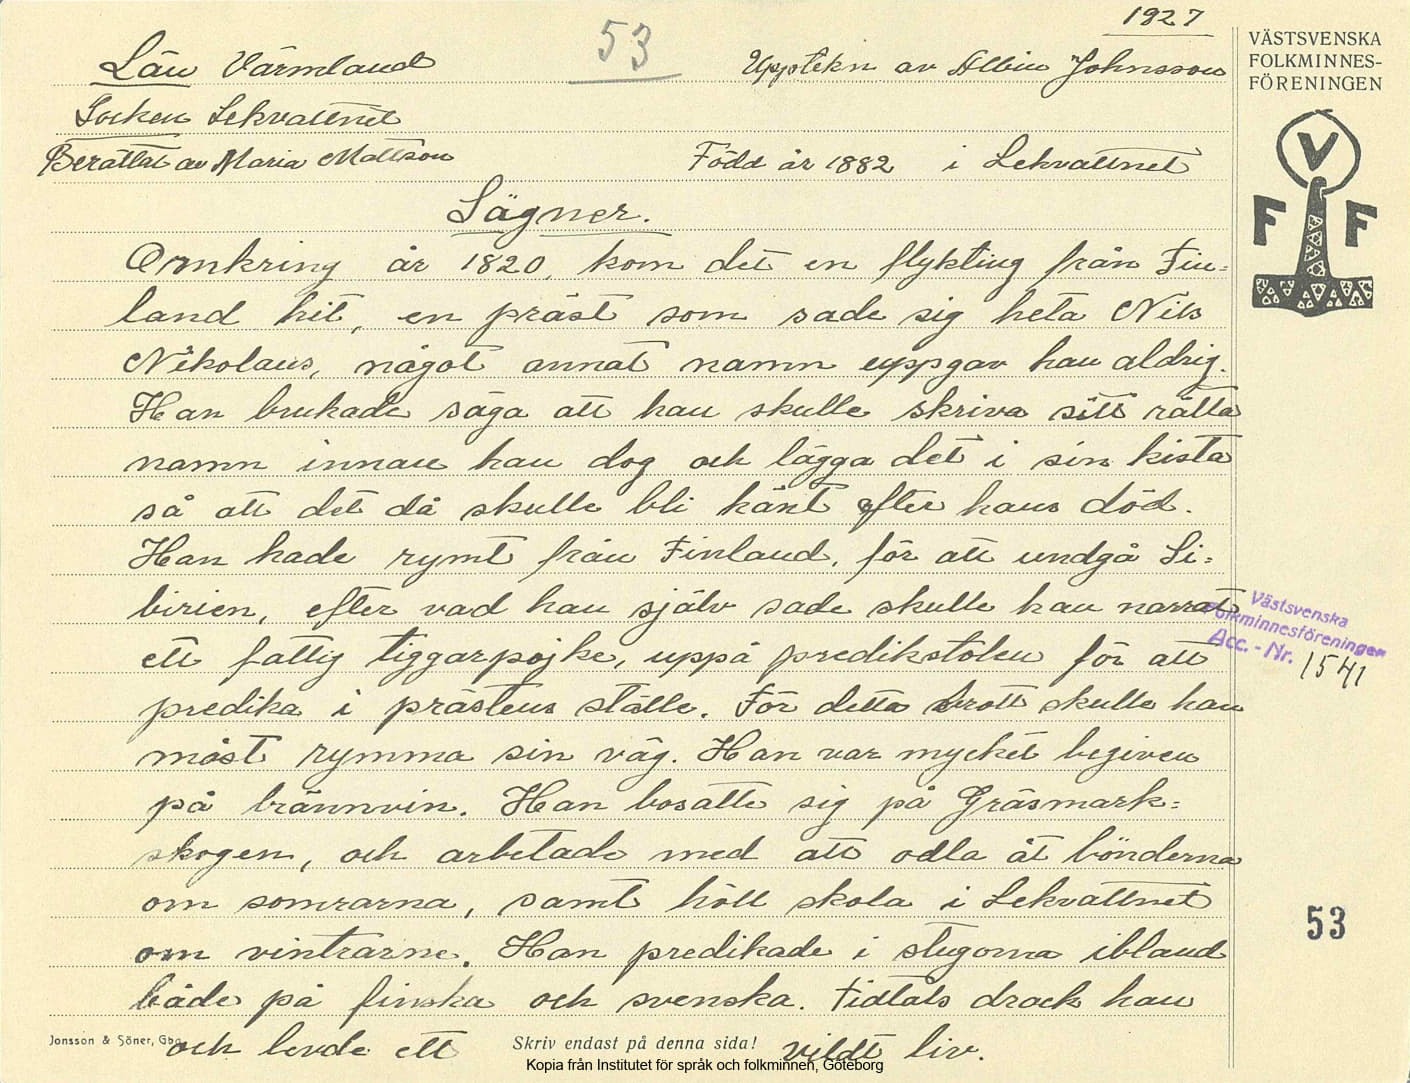 1927
53
Län Värmland Upptekn av Albin Johnsson
Socken Lekvattnet
Berättat av Maria Mattson Född år 1882 i Lekvattnet
Sägner.
Omkring år 1820, kom det en flykting från Fin=
land hit, en präst som sade sig heta Nils
Nikolaus, något annat namn uppgav han aldrig.
Han brukade säga att han skulle skriva sitt rätta
namn innan han dog och lägga det i sin kista
så att det då skulle bli känt efter hans död.
Han hade rymt från Finland, för att undgå Si=
birien, efter vad han själv sade skulle han narrat
ett fattig tiggarpojke, uppå predikstolen för att
predika i prästens ställe. För detta brott skulle han
måst rymma sin väg. Han var mycket begiven
på brännvin. Han bosatte sig på Gräsmark=
skogen, och arbetade med att odla åt bönderna
om somrarna, samt höll skola i Lekvattnet
om vintrarne. Han predikade i stugorna ibland
både på finska och svenska. Tidtals drack han
och levde ett vildt liv.
Jonsson & Söner, Gbg
Skriv endast på denna sida!
Kopia från Institutet för språk och folkminnen, Göteborg
VÄSTSVENSKA
FOLKMINNES-
FÖRENINGEN
V
F F
Västsvenska
Folkminnesföreningen
Acc. - Nr. 1541
53